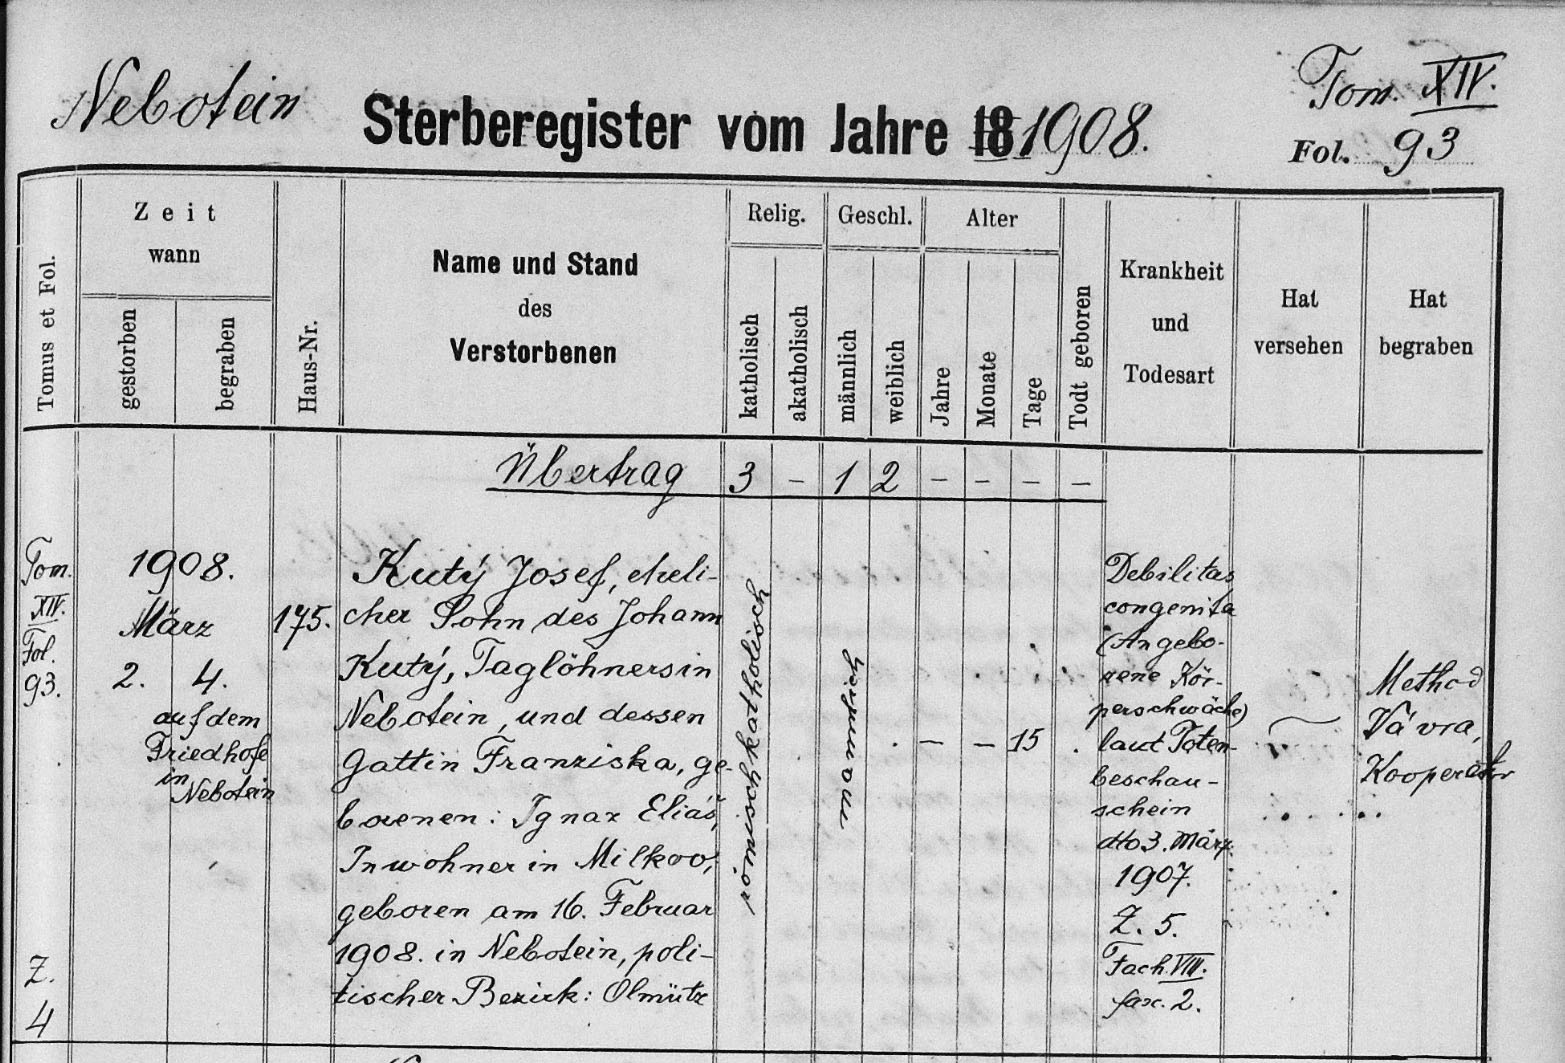 Nebotein
Sterberegister vom Jahre 18 1908.
Tom. XIV.
Fol. 93
Tomus et Fol.
Zeit
wann
gestorben
begraben
Haus-Nr.
Name und Stand
des
Verstorbenen
Relig.
katholisch
akatholisch
Geschl.
männlich
weiblich
Alter
Jahre
Monate
Tage
Todt geboren
Krankheit
und
Todesart
Hat
versehen
Hat
begraben
Übertrag 3 – 1 2 – – – –
Tom.
XIV.
Fol.
93.
Z.
4
1908.
März
2. 4.
auf dem
Friedhofe
in
Nebotein
175.
Kutý Josef, eheli-
cher Sohn des Johann
Kutý, Taglöhners in
Nebotein, und dessen
Gattin Franziska, ge-
borenen: Ignaz Eliáš,
Inwohner in Milkov,
geboren am 16. Februar
1908. in Nebotein, poli-
tischer Bezirk: Olmütz
römischkatholisch
– – 15 .
Debilitas
congenita
(Angebo-
rene Kör-
perschwäche)
laut Toten-
beschau-
schein
dto 3. März
1907.
Z. 5.
Fach. VIII.
fasc. 2.
Method
Vávra,
Kooperator